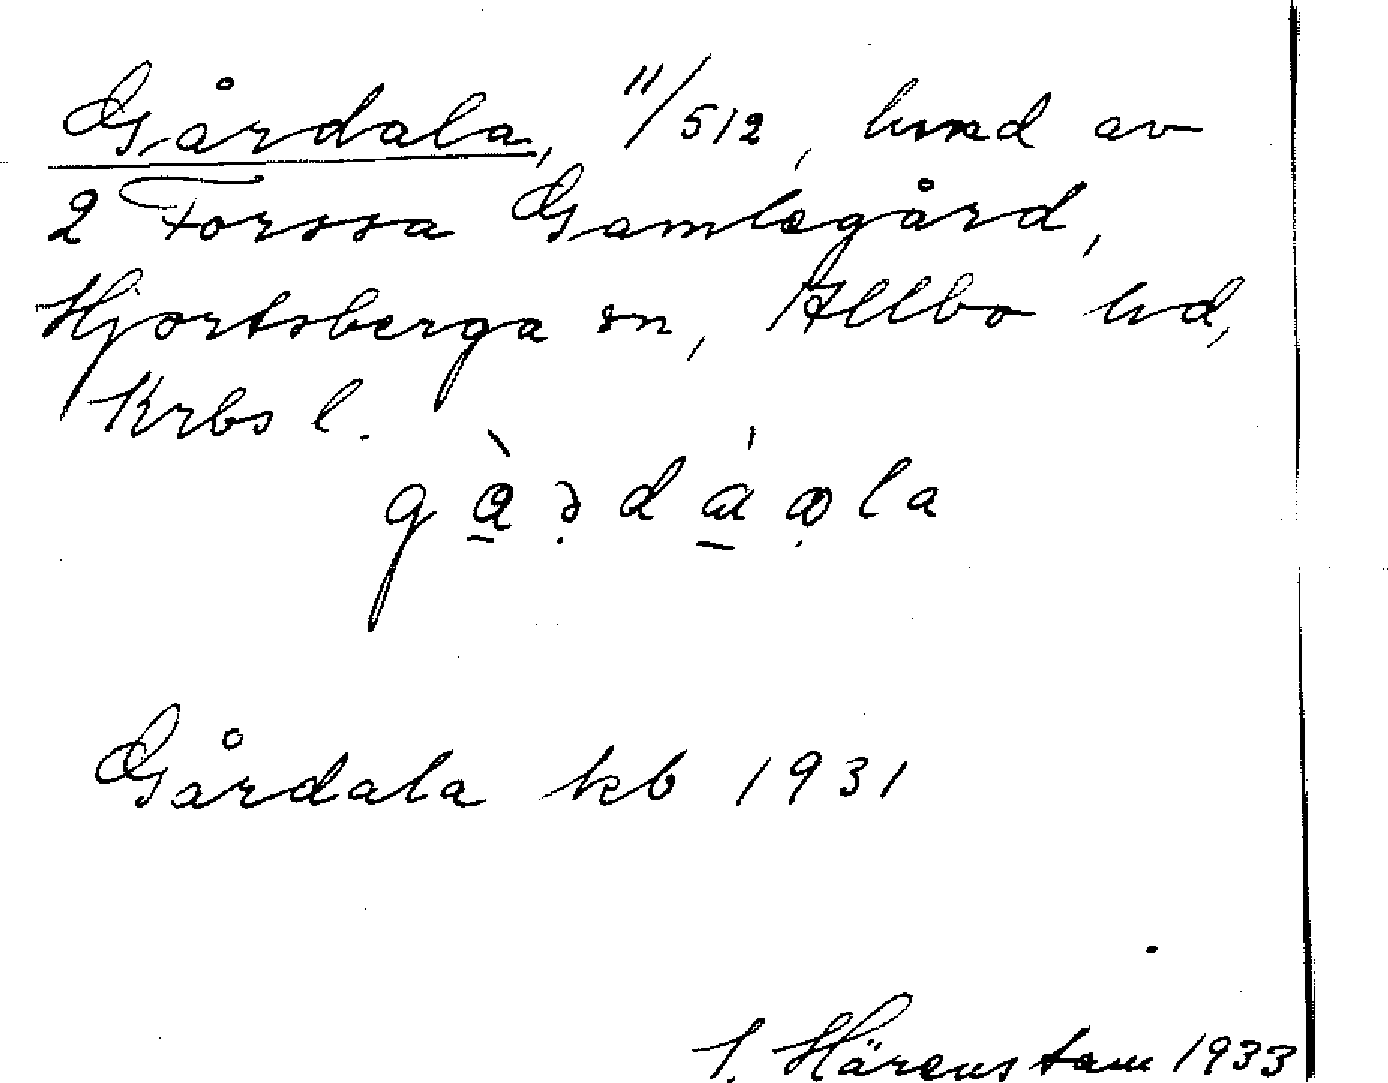 Gårdala, 11/512, hmd av
2 Forssa Gamlegård,
Hjortsberga sn, Allbo hd,
Krbs l.
Gårdala kb 1931
Härenstam 1933